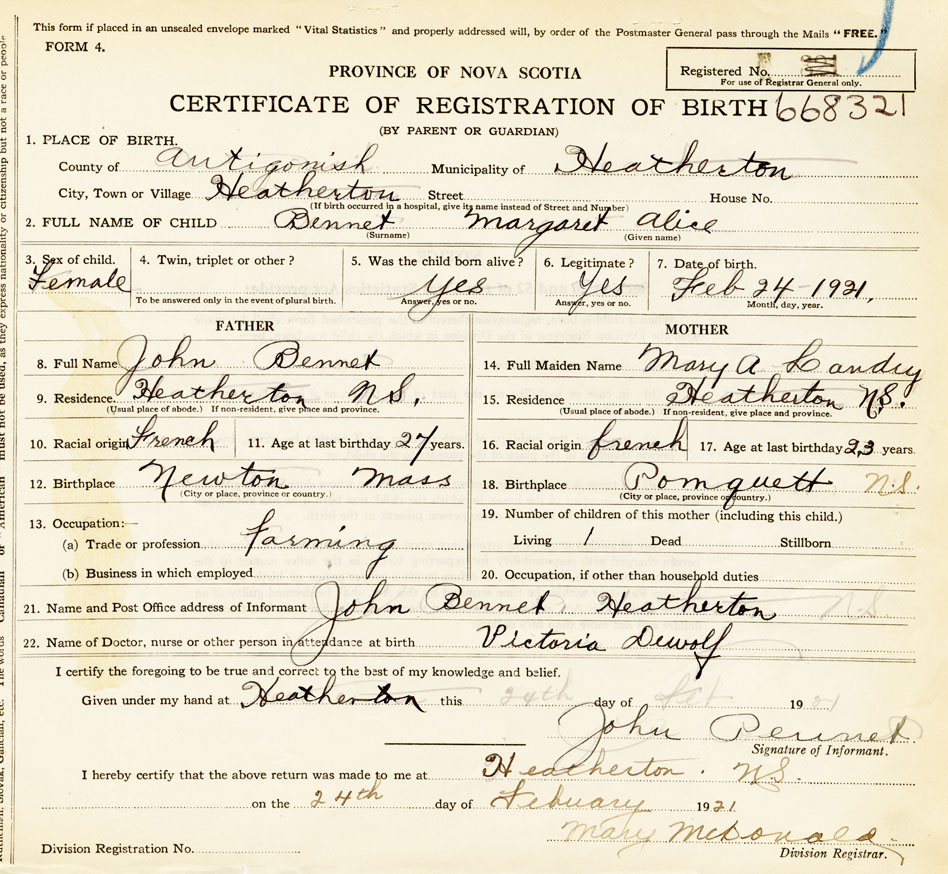 This form if placed in an unsealed envelope marked "Vital Statistics" and properly addressed will, by order of the Postmaster General pass through the Mails "FREE."
FORM 4.
Registered No.
For use of Registrar General only.
PROVINCE OF NOVA SCOTIA
CERTIFICATE OF REGISTRATION OF BIRTH 668321
(BY PARENT OR GUARDIAN)
1. PLACE OF BIRTH.
County of Antigonish Municipality of Heatherton
City, Town or Village Heatherton Street House No.
(If birth occurred in a hospital, give its name instead of Street and Number)
2. FULL NAME OF CHILD Bennet Margaret Alice
(Surname) (Given name)
3. Sex of child. 4. Twin, triplet or other? 5. Was the child born alive? 6. Legitimate? 7. Date of birth.
Female Yes Yes Feb 24 1921,
To be answered only in the event of plural birth. Answer, yes or no. Answer, yes or no. Month, day, year.
FATHER MOTHER
8. Full Name John Bennet 14. Full Maiden Name Mary A Landry
9. Residence. Heatherton N.S. 15. Residence Heatherton N.S.
(Usual place of abode.) If non-resident, give place and province. (Usual place of abode.) If non-resident, give place and province.
10. Racial origin French 11. Age at last birthday 27 years. 16. Racial origin french 17. Age at last birthday 23 years.
12. Birthplace Newton Mass 18. Birthplace Pomquett N.S.
(City or place, province or country.) (City or place, province or country.)
13. Occupation:— 19. Number of children of this mother (including this child.)
(a) Trade or profession farming Living 1 Dead Stillborn
(b) Business in which employed 20. Occupation, if other than household duties
21. Name and Post Office address of Informant John Bennet Heatherton N.S
22. Name of Doctor, nurse or other person in attendance at birth Victoria Dewolf
I certify the foregoing to be true and correct to the best of my knowledge and belief.
Given under my hand at Heatherton this 24th day of Feb 1921
John Bennet
Signature of Informant.
I hereby certify that the above return was made to me at Heatherton. N.S.
on the 24th day of Febuary 1921
Mary McDonald
Division Registrar.
Division Registration No.